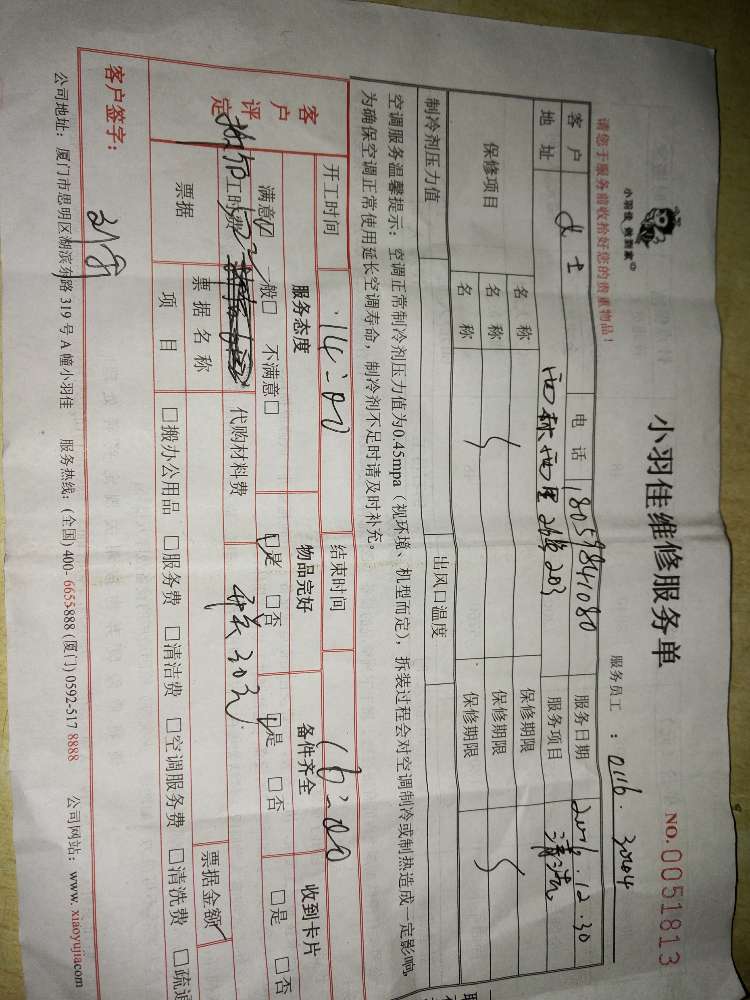 小羽佳 做到家
小羽佳维修服务单
NO.0051813
请您于服务前收拾好您的贵重物品!
服务员工 : 0116.
客户 女士 电话 18057841080 服务日期
地址 服务项目 清洗
保修项目 名称 保修期限
名称 保修期限
名称 保修期限
制冷剂压力值 出风口温度
空调服务温馨提示:空调正常制冷剂压力值为0.45mpa(视环境、机型而定),拆装过程会对空调制冷或制热造成一定影响,
为确保空调正常使用延长空调寿命,制冷剂不足时请及时补充。
开工时间 14:00 结束时间 16:00
客户评定 服务态度 物品完好 备件齐全 收到卡片
满意☑ 一般□ 不满意□ ☑是 □否 ☑是 □否 □是 □否
代购材料费
票据 票据名称 票据金额
项目 □搬办公用品 □服务费 □清洁费 □空调服务费 □清洗费
客户签字:
公司地址:厦门市思明区湖滨东路 319 号 A 幢小羽佳 服务热线:(全国) 400-6655888 (厦门) 0592-517 8888 公司网站:www.xiaoyujiacom